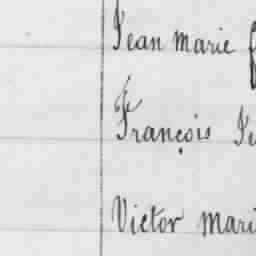 Jean Marie
François Je
Victor Mari